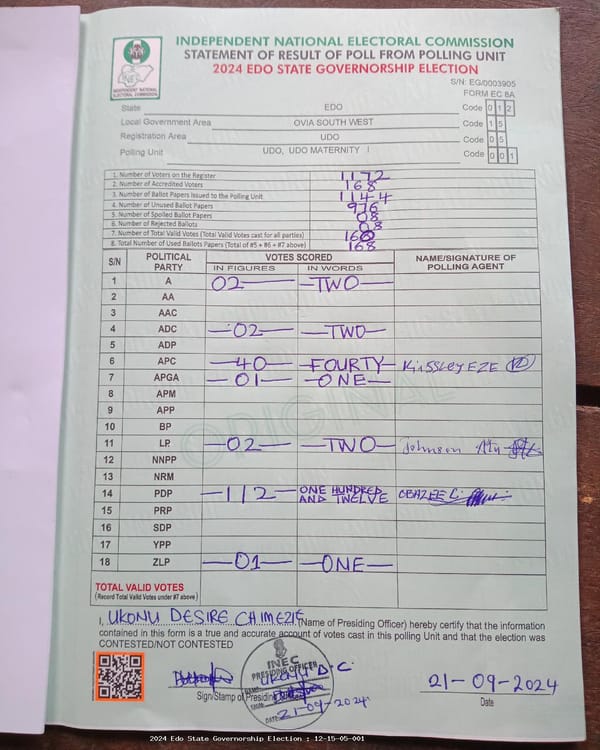 INDEPENDENT NATIONAL ELECTORAL COMMISSION
STATEMENT OF RESULT OF POLL FROM POLLING UNIT
2024 EDO STATE GOVERNORSHIP ELECTION
INEC
INDEPENDENT NATIONAL ELECTORAL COMMISSION
S/N: EG/0003905
FORM EC 8A
State EDO Code 0 1 2
Local Government Area OVIA SOUTH WEST Code 1 5
Registration Area UDO Code 0 5
Polling Unit UDO, UDO MATERNITY I Code 0 0 1
1. Number of Voters on the Register 1172
2. Number of Accredited Voters 168
3. Number of Ballot Papers Issued to the Polling Unit 1144
4. Number of Unused Ballot Papers 976
5. Number of Spoiled Ballot Papers 08
6. Number of Rejected Ballots 08
7. Number of Total Valid Votes (Total Valid Votes cast for all parties) 160
8. Total Number of Used Ballots Papers (Total of #5 + #6 + #7 above) 168
S/N POLITICAL PARTY VOTES SCORED NAME/SIGNATURE OF POLLING AGENT
IN FIGURES IN WORDS
1 A 02 TWO
2 AA
3 AAC
4 ADC 02 TWO
5 ADP
6 APC 40 FOURTY KiSSLey EZE
7 APGA 01 ONE
8 APM
9 APP
10 BP
11 LP 02 TWO Johnson
12 NNPP
13 NRM
14 PDP 112 ONE HUNDRED AND TWELVE
15 PRP
16 SDP
17 YPP
18 ZLP 01 ONE
ORIGINAL
TOTAL VALID VOTES
(Record Total Valid Votes under #7 above)
I, UKONU DESIRE CHIMEZIE (Name of Presiding Officer) hereby certify that the information
contained in this form is a true and accurate account of votes cast in this polling Unit and that the election was
CONTESTED/NOT CONTESTED
INEC
PRESIDING OFFICER
NAME: UKONU D. C.
SIGN:
DATE: 21-09-2024
Sign/Stamp of Presiding
21-09-2024
Date
2024 Edo State Governorship Election : 12-15-05-001